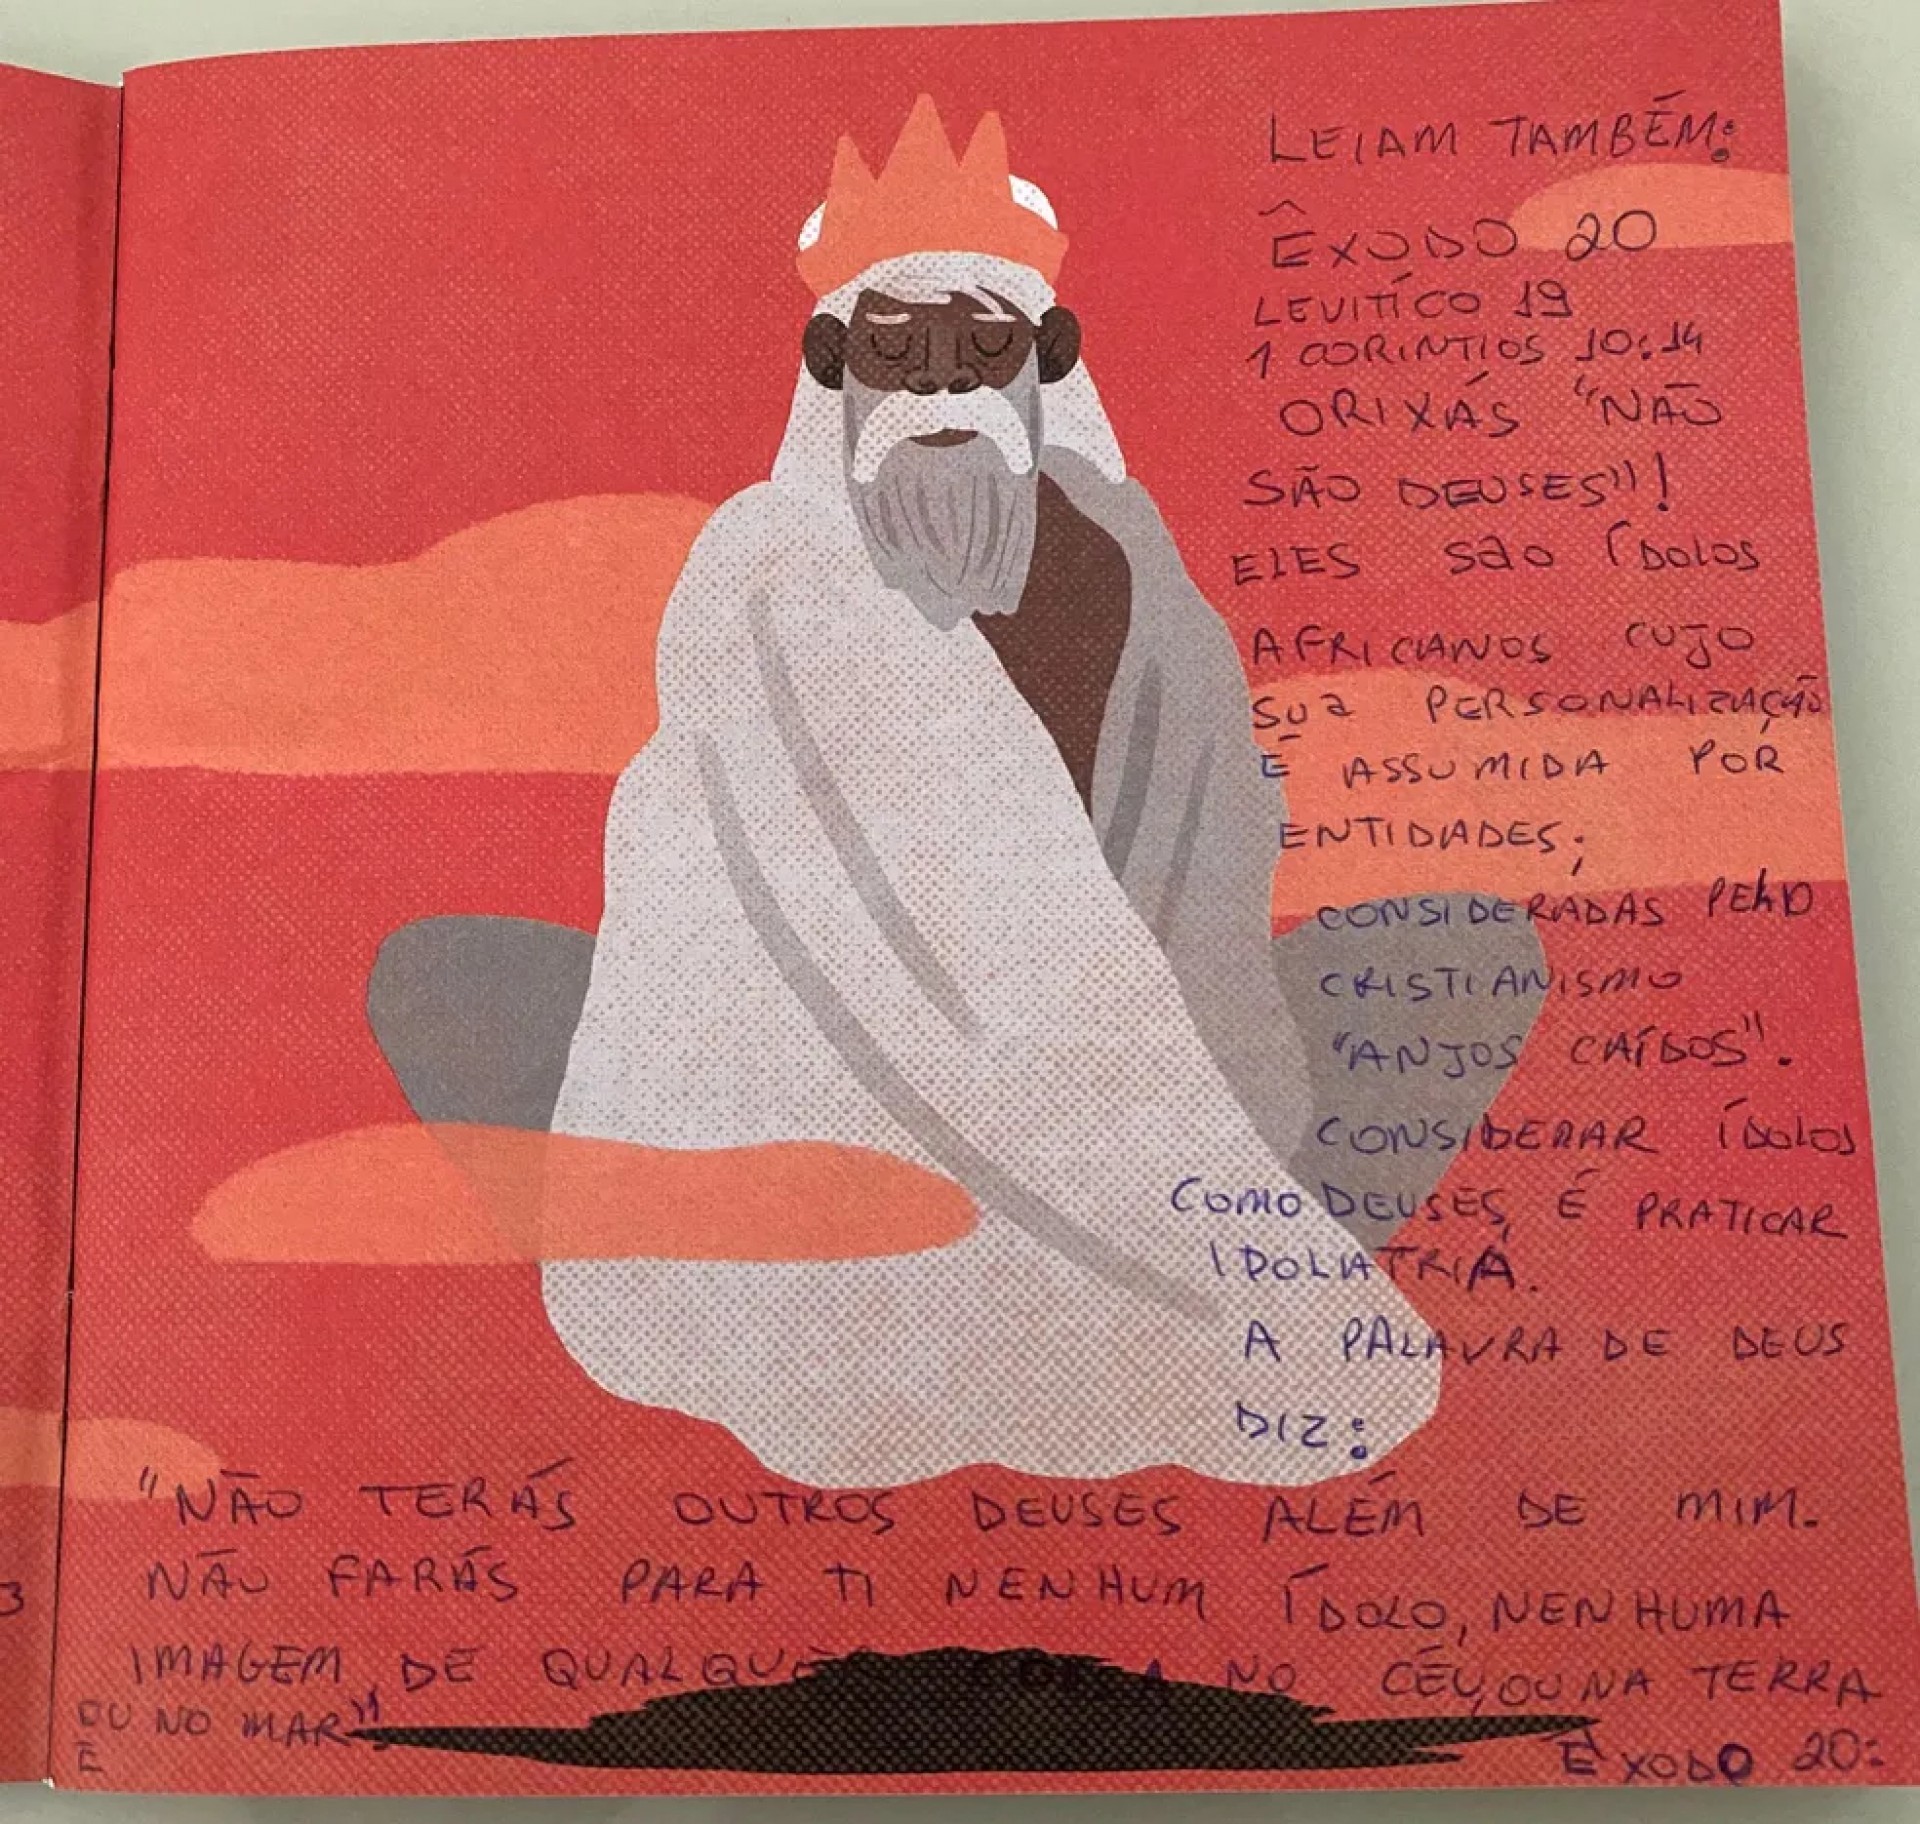 LEIAM TAMBÉM:
ÊXODO 20
LEVITÍCO 19
1 CORINTIOS 10:14
ORIXÁS "NÃO
SÃO DEUSES"!
ELES são ÍDOLOS
AFRICANOS CUJO
SUa PERSONALIZAÇÃO
É ASSUMIDA POR
ENTIDADES;
CONSIDERADAS PELO
CRISTIANISMO
"ANJOS CAÍDOS".
CONSIDERAR ÍDOLOS
COMO DEUSES, É PRATICAR
IDOLATRIA.
A PALAVRA DE DEUS
DIZ:
"NÃO TERÁS OUTROS DEUSES ALÉM DE MIM.
NÃO FARÁS PARA TI NENHUM ÍDOLO, NENHUMA
IMAGEM DE QUALQUER NO CÉU, OU NA TERRA
OU NO MAR"
É ÊXODO 20:
3